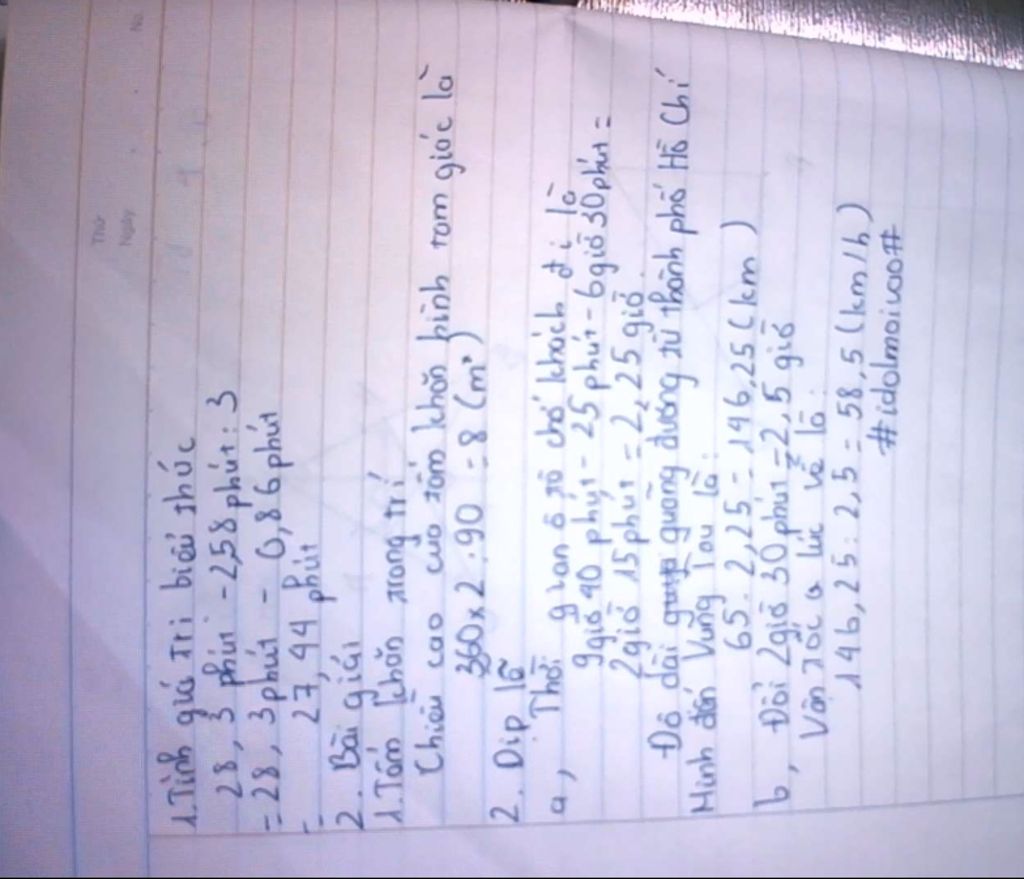 No.
Thứ
Ngày
1. Tính giá trị biểu thức
28,3 phút - 2,58 phút : 3
= 28,3 phút - 0,86 phút
= 27,44 phút
2. Bài giải
1. Tấm khăn trang trí
Chiều cao của tấm khăn hình tam giác là
360 x 2 : 90 = 8 (m²)
2. Dịp lễ
a, Thời gian ô tô chở khách đi là
9 giờ 40 phút - 25 phút - 6 giờ 30 phút =
2 giờ 15 phút = 2,25 giờ
Độ dài quãng đường từ thành phố Hồ Chí
Minh đến Vũng Tàu là:
65. 2,25 = 146,25 (km)
b, Đổi 2 giờ 30 phút = 2,5 giờ
Vận tốc a lúc về là:
146,25 : 2,5 = 58,5 (km/h)
#idolmoivao#